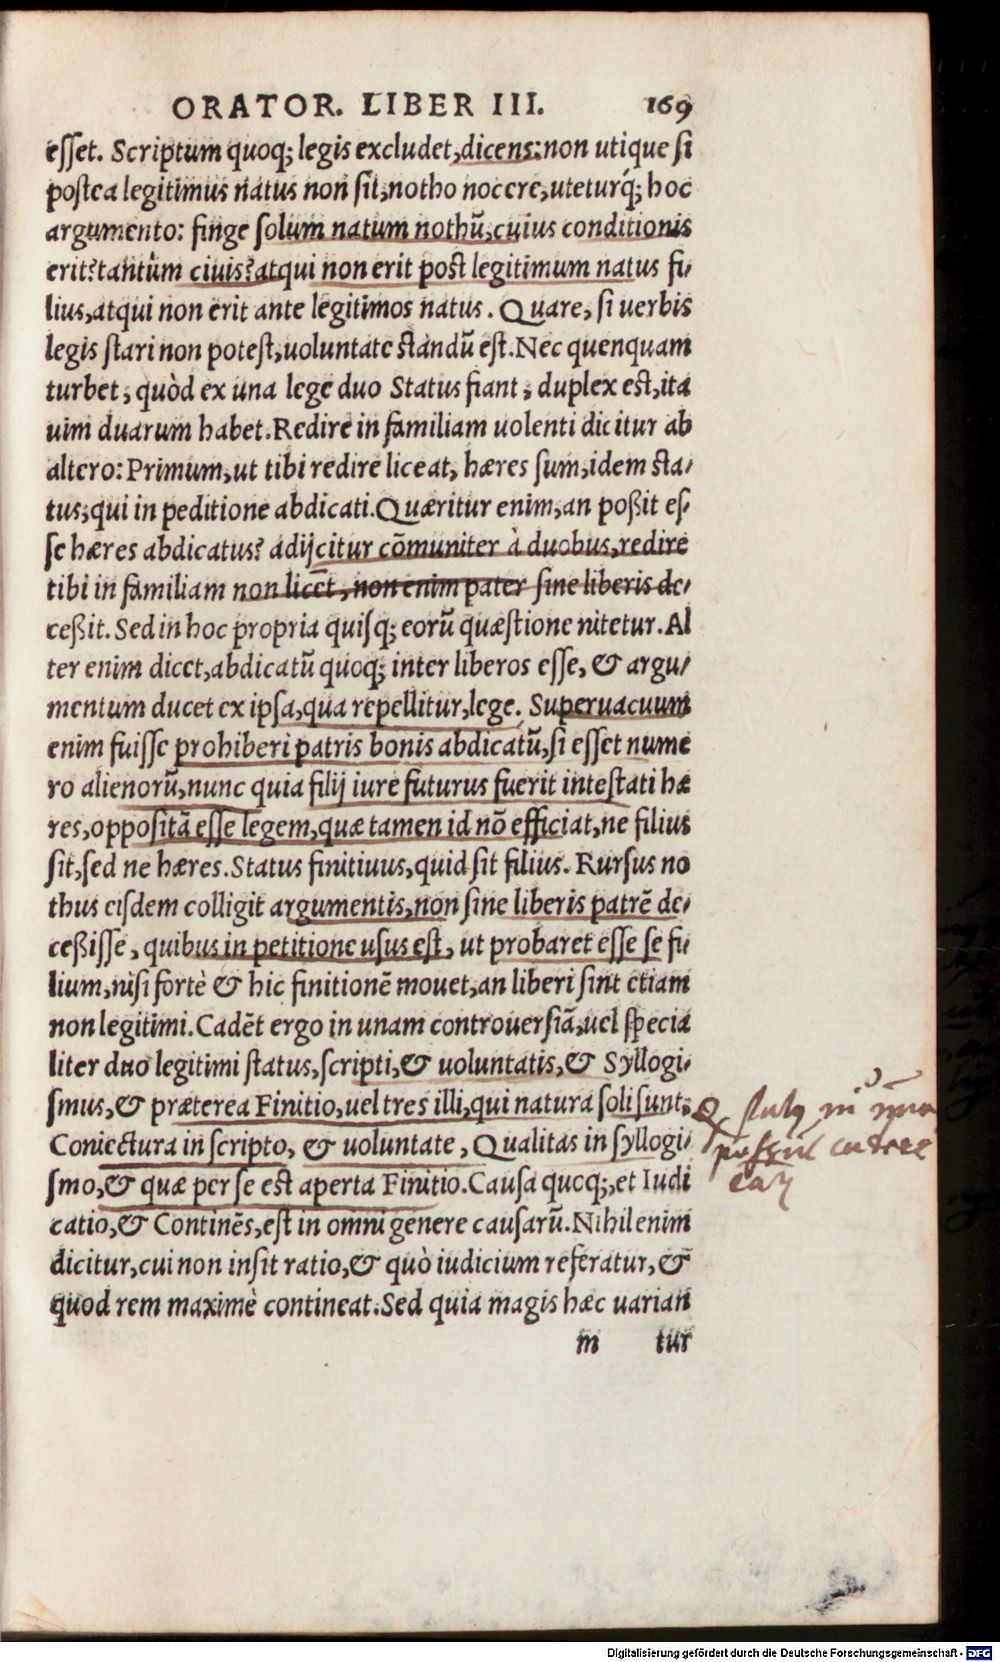 ORATOR. LIBER III. 169
esset. Scriptum quoq; legis excludet, dicens: non utique si
postea legitimus natus non sit, notho nocere, uteturq́; hoc
argumento: finge solum natum nothũ, cuius conditionis
erit? tantûm ciuis? atqui non erit post legitimum natus fi-
lius, atqui non erit ante legitimos natus. Quare, si uerbis
legis stari non potest, uoluntate standũ est. Nec quenquam
turbet, quòd ex una lege duo Status fiant, duplex est, ita
uim duarum habet. Redire in familiam uolenti dicitur ab
altero: Primum, ut tibi redire liceat, hæres sum, idem sta-
tus, qui in peditione abdicati. Quæritur enim, an poßit es-
se hæres abdicatus? adijcitur cõmuniter à duobus, redire
tibi in familiam non licet, non enim pater sine liberis de-
ceßit. Sed in hoc propria quisq; eorũ quæstione nitetur. Al
ter enim dicet, abdicatũ quoq; inter liberos esse, & argu-
mentum ducet ex ipsa, qua repellitur, lege. Superuacuum
enim fuisse prohiberi patris bonis abdicatũ, si esset nume
ro alienorũ, nunc quia filij iure futurus fuerit intestati hæ
res, oppositã esse legem, quæ tamen id nõ efficiat, ne filius
sit, sed ne hæres. Status finitiuus, quid sit filius. Rursus no
thus eisdem colligit argumentis, non sine liberis patrẽ de-
ceßisse, quibus in petitione usus est, ut probaret esse se fi-
lium, nisi fortè & hic finitionẽ mouet, an liberi sint etiam
non legitimi. Cadẽt ergo in unam controuersiã, uel specia
liter duo legitimi status, scripti, & uoluntatis, & Syllogi-
smus, & præterea Finitio, uel tres illi, qui natura soli sunt,
Coniectura in scripto, & uoluntate, Qualitas in syllogi-
smo, & quæ per se est aperta Finitio. Causa quoq;, et Iudi
catio, & Continẽs, est in omni genere causarũ. Nihil enim
dicitur, cui non insit ratio, & quò iudicium referatur, &
quod rem maximè contineat. Sed quia magis hæc uarian
m tur
Digitalisierung gefördert durch die Deutsche Forschungsgemeinschaft - DFG